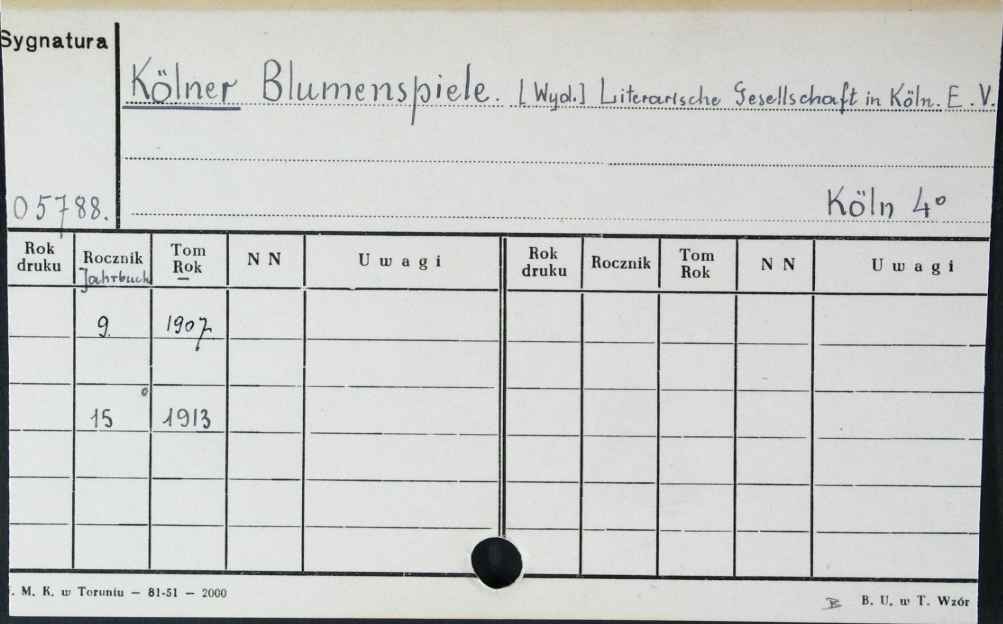 Sygnatura
Kölner Blumenspiele. [Wyd.] Literarische Gesellschaft in Köln. E.V.
05788.
Köln 4°
Rok druku Rocznik Jahrbuch Tom Rok N N Uwagi Rok druku Rocznik Tom Rok N N Uwagi
9 1907
15 1913
. M. K. w Toruniu — 81-51 — 2000
B. U. w T. Wzór